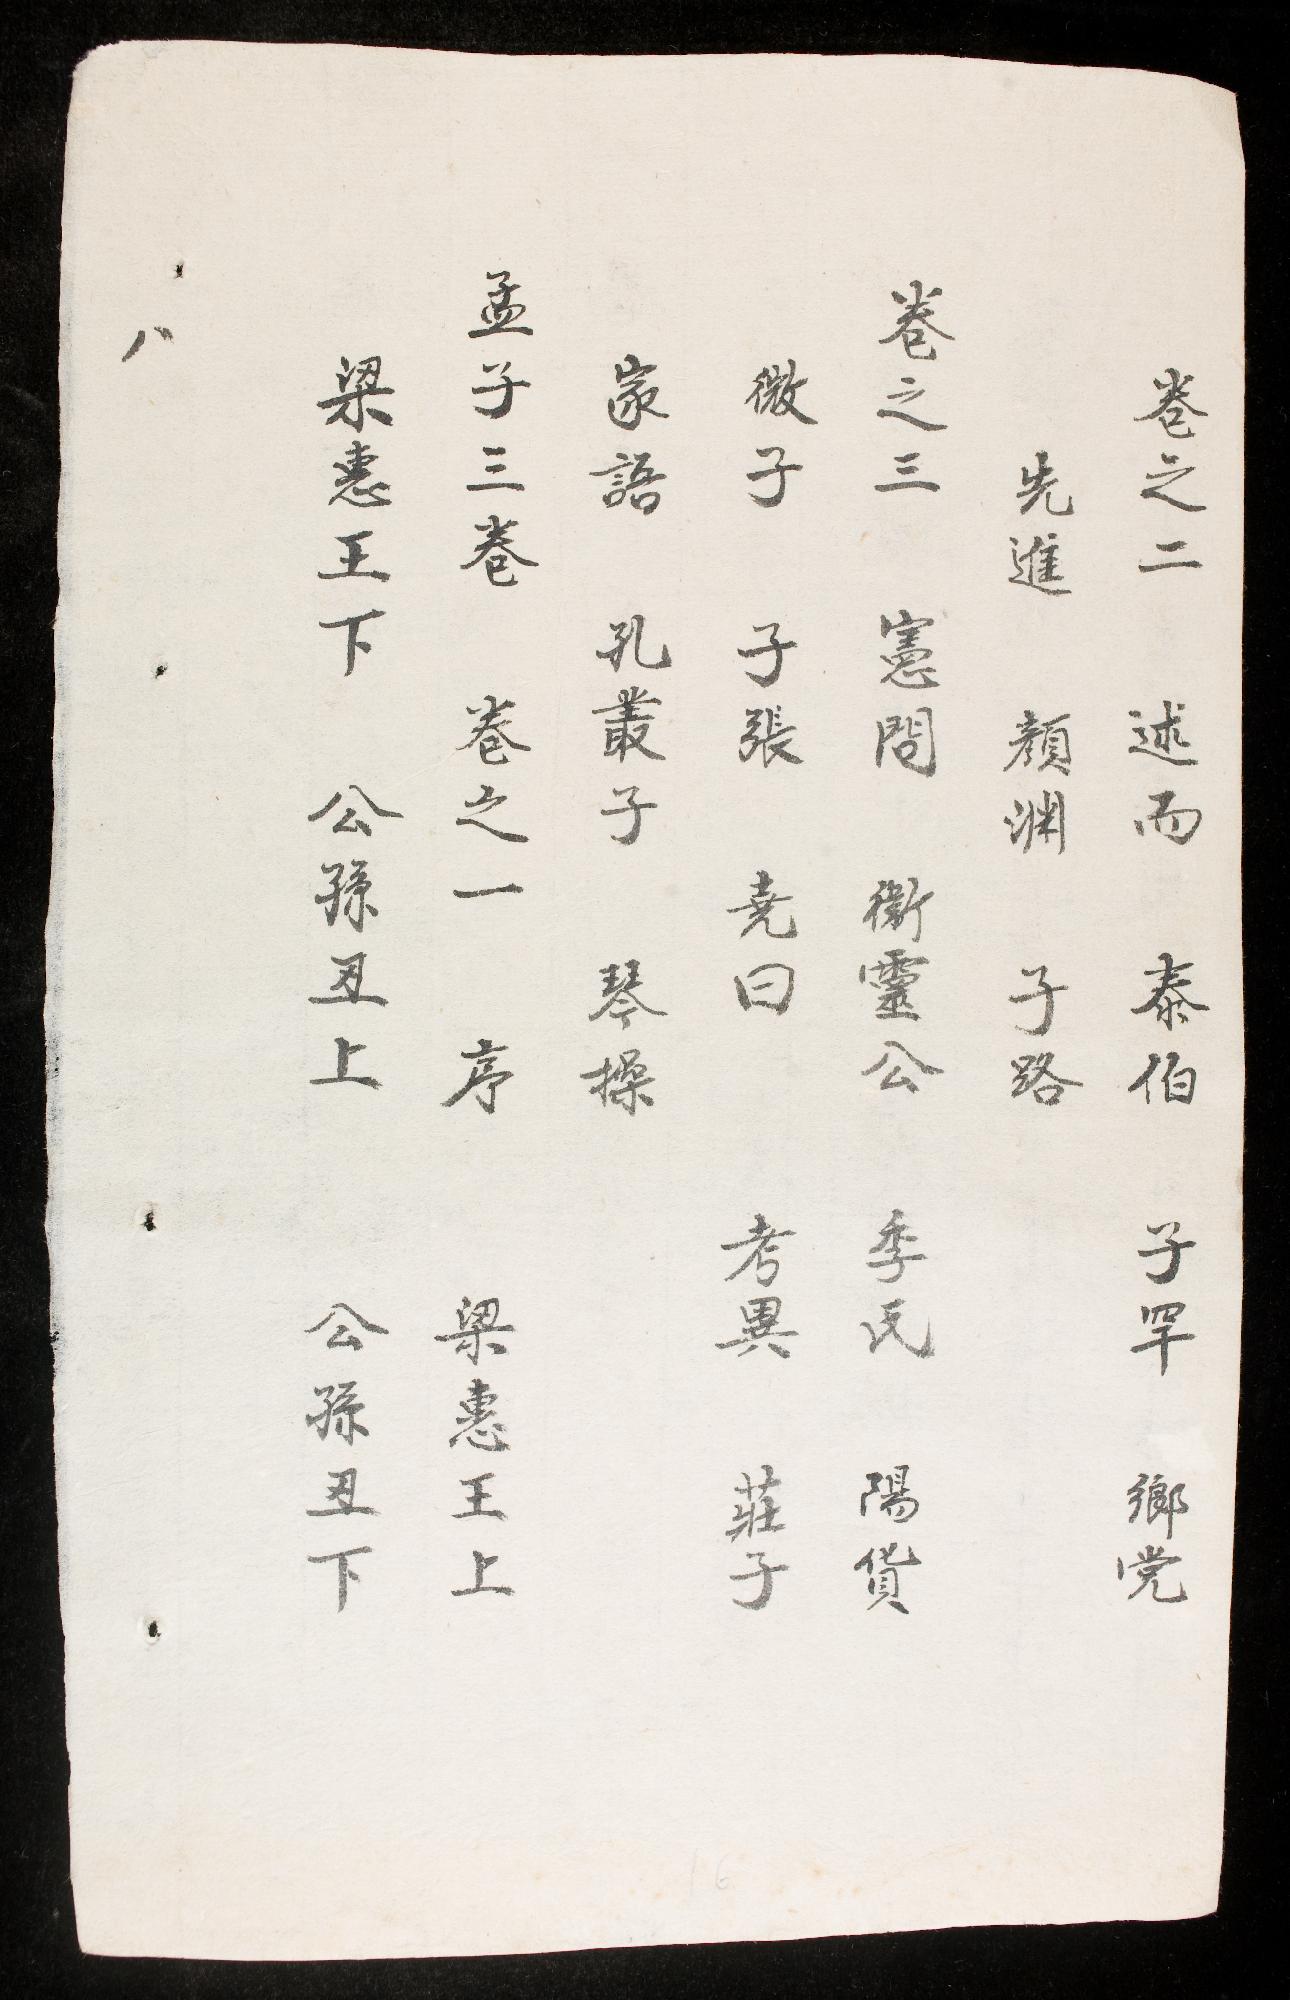 巻之二　述而　泰伯　子罕　郷党
先進　顔渊　子路
巻之三　憲問　衛靈公　季氏　陽貨
微子　子張　尭曰　考異　莊子
家語　孔叢子　琴操
孟子三巻　巻之一　序　梁惠王上
梁惠王下　公孫丑上　公孫丑下
八
16